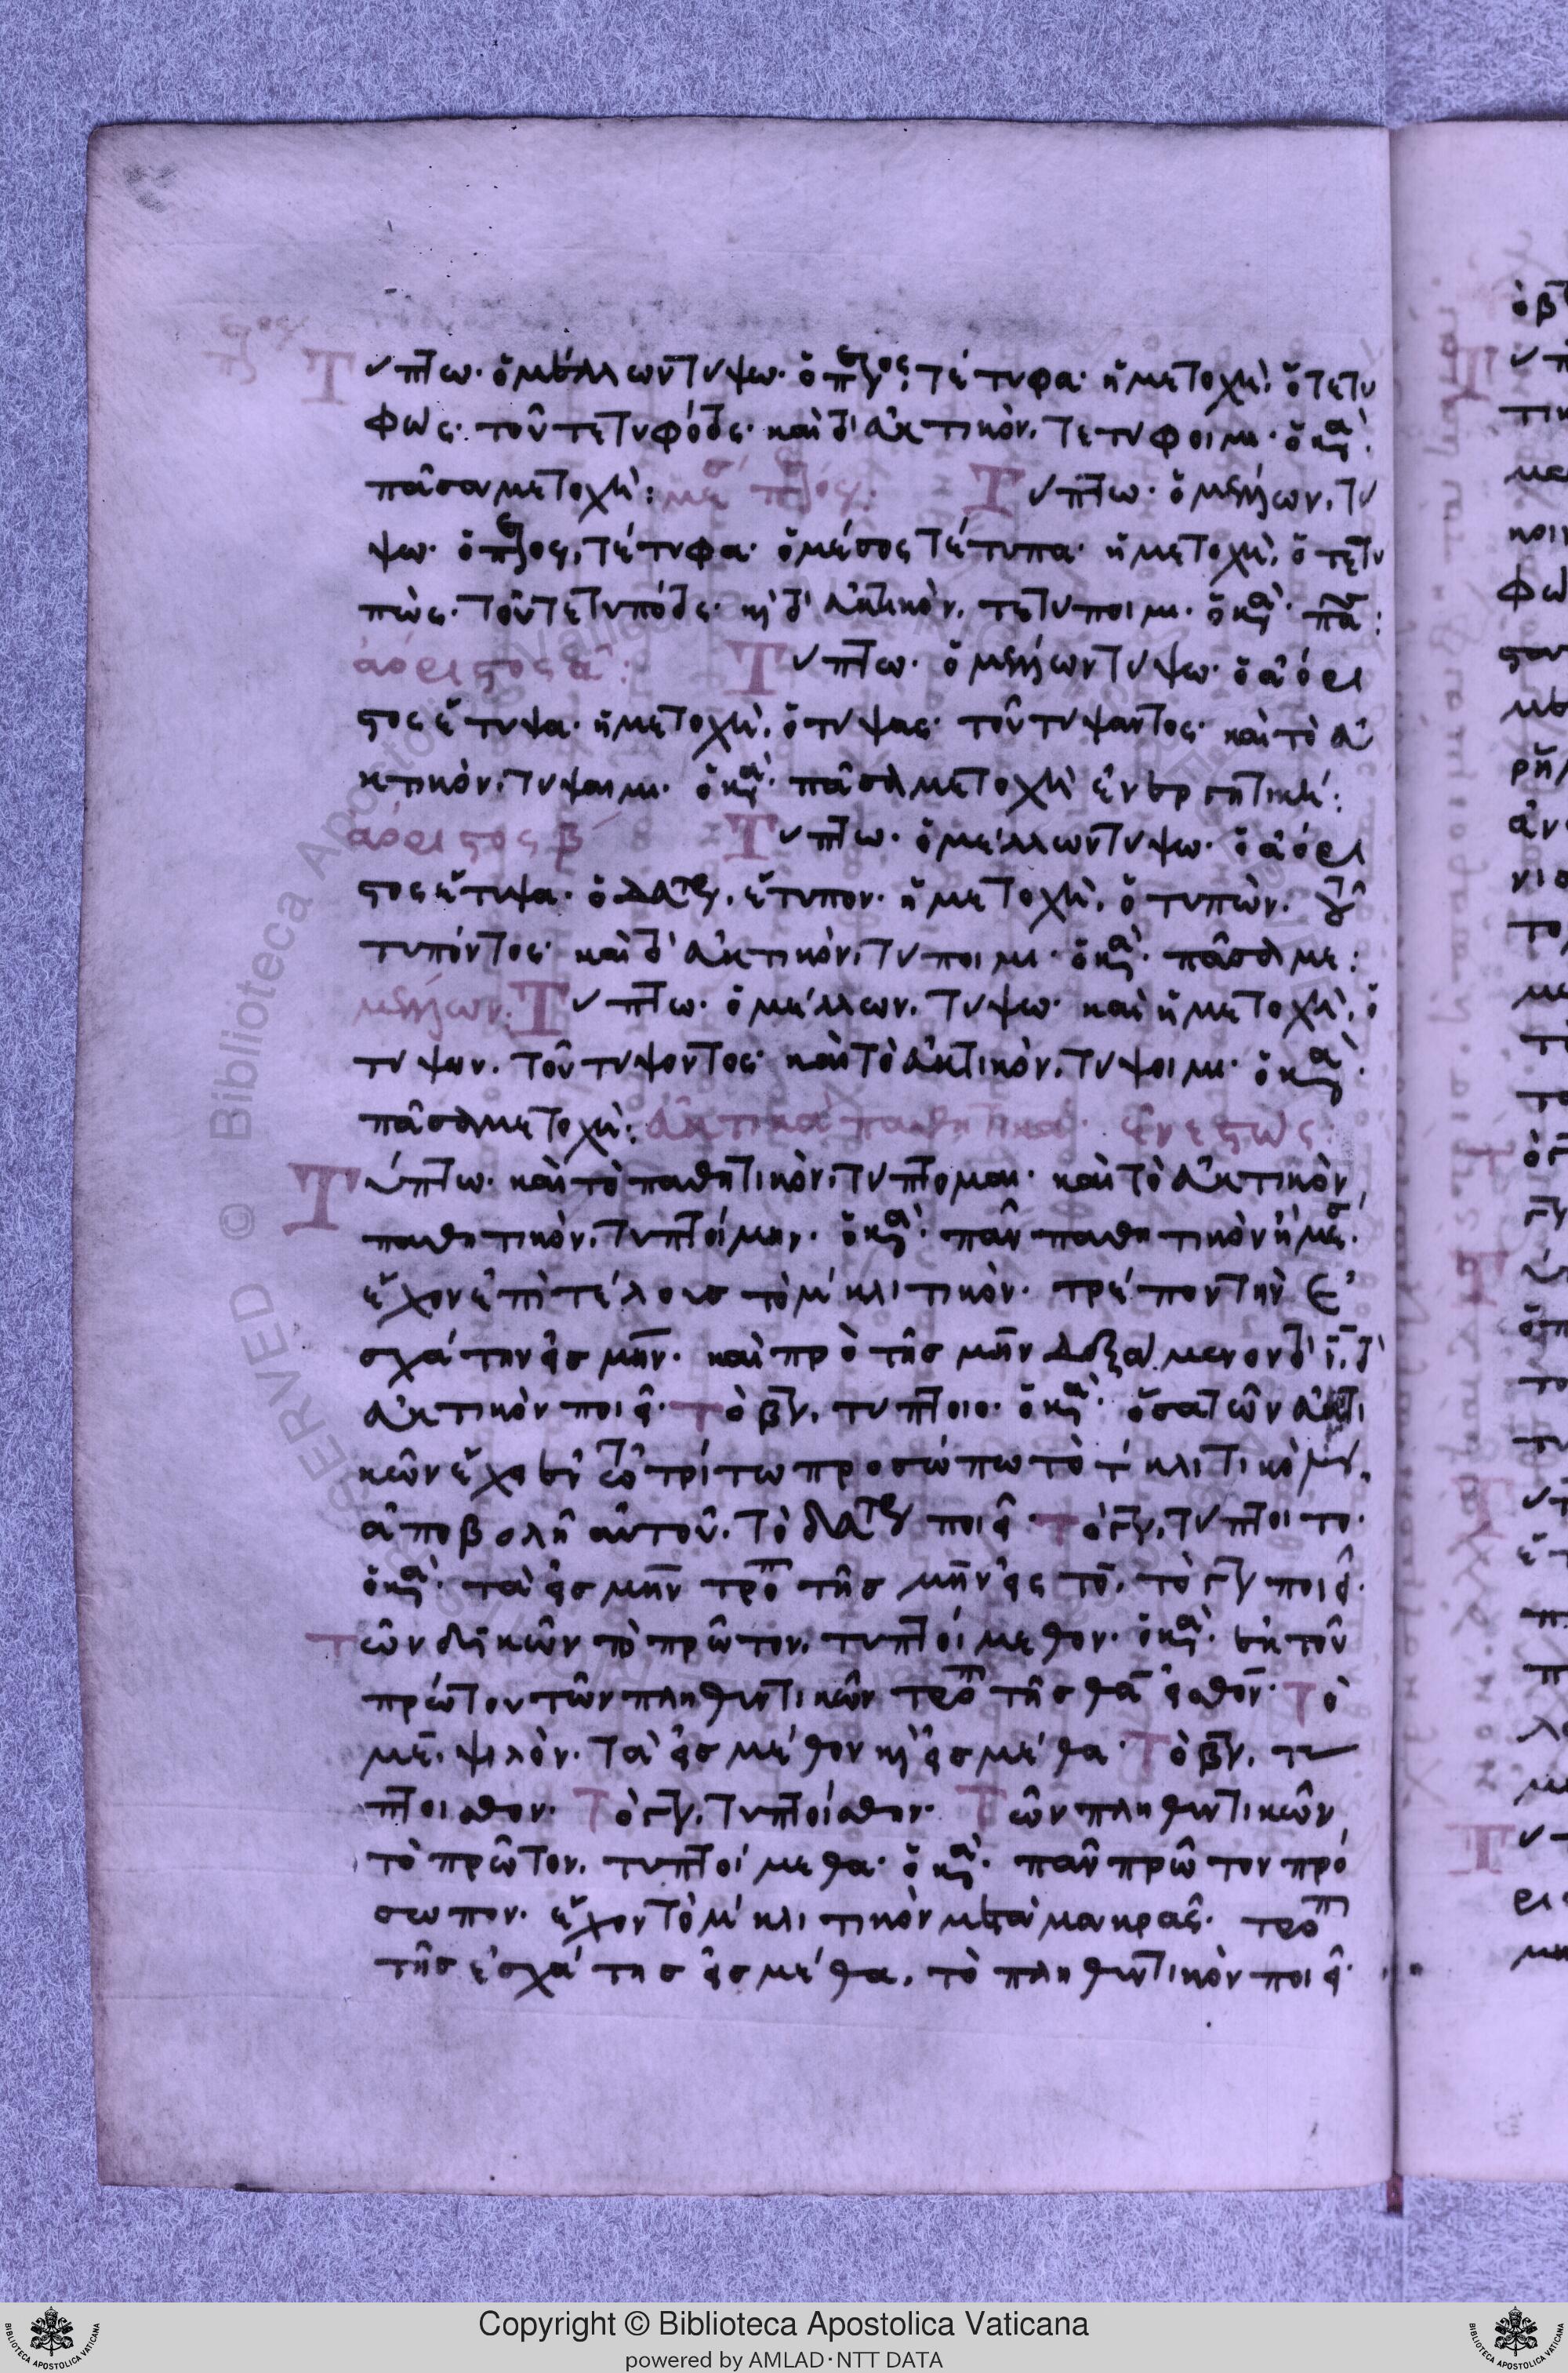 Τύπτω· ὁ μέλλων τύψω· ὁ π̅ος, τέτυφα· ἡ μετοχὴ, ὁ τετυ
φώς· τοῦ τετυφότος· καὶ τὸ εὐκτικὸν, τετύφοιμι· ὁ κα·
πᾶσα μετοχή: Τύπτω· ὁ μέλλων, τύ
ψω· ὁ π̅ος, τέτυφα· ὁ μέσος τέτυπα· ἡ μετοχὴ, ὁ τετυ
πὼς· τοῦ τετυπότος· κ τὸ εὐκτικὸν, τετύποιμι· ὁ κα· πᾶ:
ἀόριστος α: Τύπτω· ὁ μέλλων τύψω· ὁ ἀόρι
στος ἔτυψα· ἡ μετοχὴ, ὁ τύψας· τοῦ τύψαντος· καὶ τὸ εὐ
κτικὸν, τύψαιμι· ὁ κα· πᾶσα μετοχὴ ἐνεργητική:
ἀόριστος β Τύπτω· ὁ μέλλων τύψω· ὁ ἀόρι
στος ἔτυψα· ὁ δεύτε, ἔτυπον· ἡ μετοχὴ, ὁ τυπών· τοῦ
τυπόντος· καὶ τὸ εὐκτικὸν, τύποιμι· ὁ κα· πᾶσα με:
μέλλων. Τύπτω· ὁ μέλλων, τύψω· καὶ ἡ μετοχὴ, ὁ
τύψων. τοῦ τύψοντος· καὶ τὸ εὐκτικὸν, τύψοιμι· ὁ κα·
πᾶσα μετοχὴ: εὐκτικὰ παθητικά· ἐνεστώς:
Τύπτω· καὶ τὸ παθητικὸν, τύπτομαι· καὶ τὸ εὐκτικὸν
παθητικὸν, τυπτοίμην· ὁ κα· πᾶν παθητικὸν ἢ μέσ·
ἔχον ἐπὶ τέλους τὸ μ κλιτικὸν· τρέπον τὴν ἐ
σχάτην εἰς μη̅ν· καὶ πρὸ τῆς μη̅ν δεξάμενον τὸ ϊ, τὸ
εὐκτικὸν ποιεῖ· τὸ β̅ν, τύπτοιο· ὁ κα· ὅσα τῶν εὐκτι
κῶν ἔχει ἐν τῶ τρίτω προσώπω τὸ τ κλιτικὸν,
ἀποβολῆ αὐτοῦ, τὸ δεύτε ποιεῖ· τὸ γ, τύπτοιτο·
ὁ κα· τὰ εἰς μη̅ν τροπ τῆς μη̅ν εἰς το̅, τὸ γ ποιεῖ·
τῶν δυϊκῶν τὸ πρῶτον, τυπτοίμεθον· ὁ κα· ἐκ τοῦ
πρώτου τῶν πληθυντικῶν τροπ τῆς θα̅ εἰς θον̅· Τὸ
με̅. ψιλὸν· τὰ εἰς μέθον κ εἰς μέθα· Τὸ β̅ν, τύ
πτοισθον· Τὸ γ, τυπτοίσθην· Τῶν πληθυντικῶν
τὸ πρῶτον, τυπτοίμεθα· ὁ κα· πᾶν πρῶτον πρό
σωπον· ἔχον τὸ μ κλιτικὸν μετὰ μακρᾶς· τροπ
τῆς ἐσχάτης εἰς μέθα, τὸ πληθυντικὸν ποιεῖ·
Copyright © Biblioteca Apostolica Vaticana
powered by AMLAD·NTT DATA